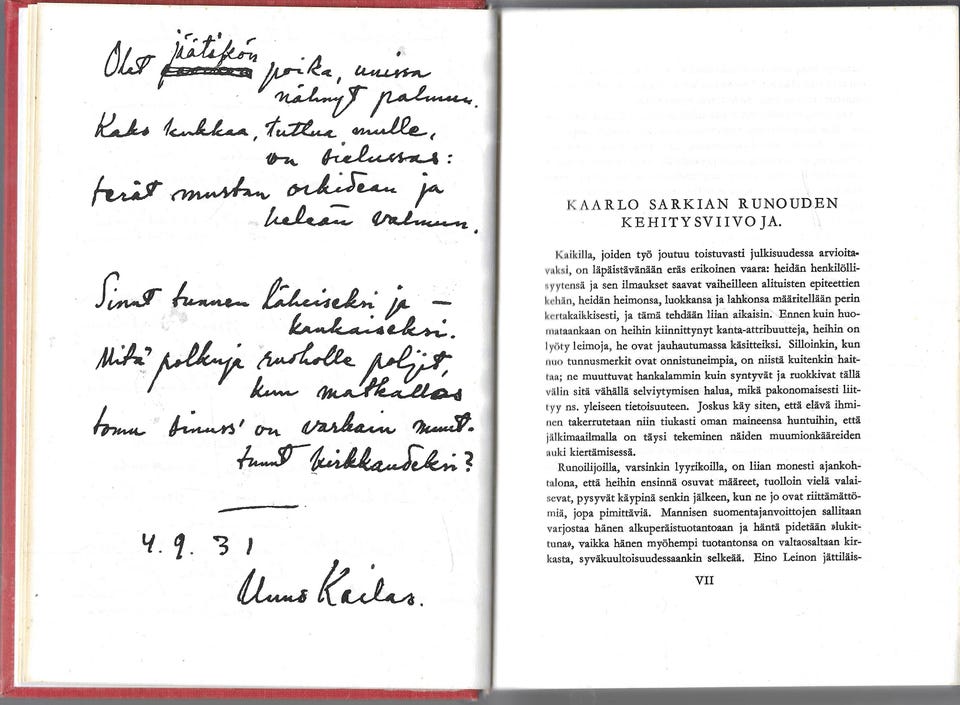 Olet jäätikön poika, unissa
nähnyt palmun.
Kaks kukkaa, tuttua mulle,
on sielussas:
terät mustan orkidean ja
heleän valmun.
Sinut tunnen läheiseksi ja –
kaukaiseksi.
Mitä polkuja ruoholle poljit,
kun matkallas
tomu sinuss' on varkain muut-
tunut kirkkaudeksi?
4.9.31
Uuno Kailas.
KAARLO SARKIAN RUNOUDEN
KEHITYSVIIVOJA.
Kaikilla, joiden työ joutuu toistuvasti julkisuudessa arvioita-
vaksi, on läpäistävänään eräs erikoinen vaara: heidän henkilölli-
syytensä ja sen ilmaukset saavat vaiheilleen alituisten epiteettien
kehän, heidän heimonsa, luokkansa ja lahkonsa määritellään perin
kertakaikkisesti, ja tämä tehdään liian aikaisin. Ennen kuin huo-
mataankaan on heihin kiinnittynyt kanta-attribuutteja, heihin on
lyöty leimoja, he ovat jauhautumassa käsitteiksi. Silloinkin, kun
nuo tunnusmerkit ovat onnistuneimpia, on niistä kuitenkin hait-
taa; ne muuttuvat hankalammin kuin syntyvät ja ruokkivat tällä
välin sitä vähällä selviytymisen halua, mikä pakonomaisesti liit-
tyy ns. yleiseen tietoisuuteen. Joskus käy siten, että elävä ihmi-
nen takerrutetaan niin tiukasti oman maineensa huntuihin, että
jälkimaailmalla on täysi tekeminen näiden muumionkääreiden
auki kiertämisessä.
Runoilijoilla, varsinkin lyyrikoilla, on liian monesti ajankoh-
talona, että heihin ensinnä osuvat määreet, tuolloin vielä valai-
sevat, pysyvät käypinä senkin jälkeen, kun ne jo ovat riittämättö-
miä, jopa pimittäviä. Mannisen suomentajanvoittojen sallitaan
varjostaa hänen alkuperäistuotantoaan ja häntä pidetään »lukit-
tuna», vaikka hänen myöhempi tuotantonsa on valtaosaltaan kir-
kasta, syväkuultoisuudessaankin selkeää. Eino Leinon jättiläis-
VII